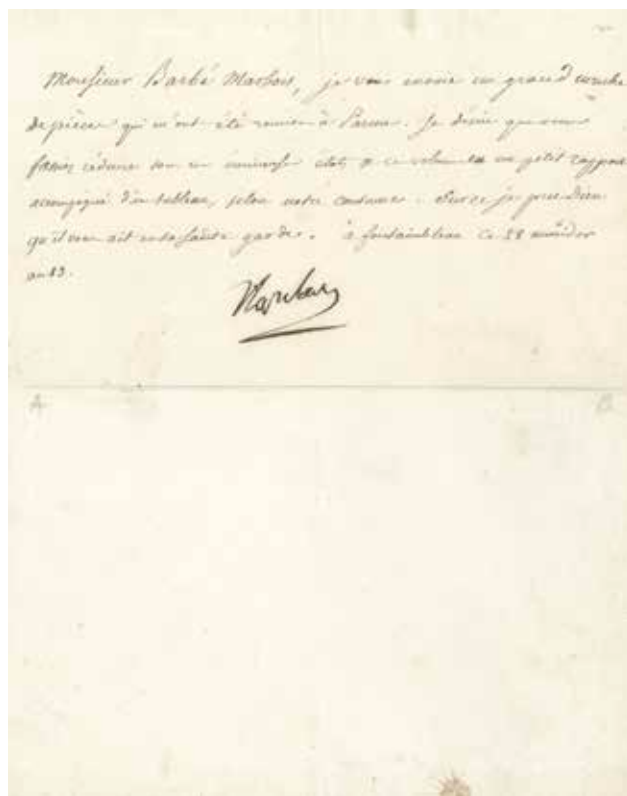 Monsieur Barbé Marbois, je vous envoie un grand nombre
de pièces qui m'ont été remises à Parme. Je désire que vous
fassiez réduire tou ce volume en un petit rapport
accompagné d'un tableau, selon notre coutume. Sur ce je prie Dieu
qu'il vous ait en sa sainte garde. à fontainebleau ce 28 messidor
an 13.
Napoleon
A B